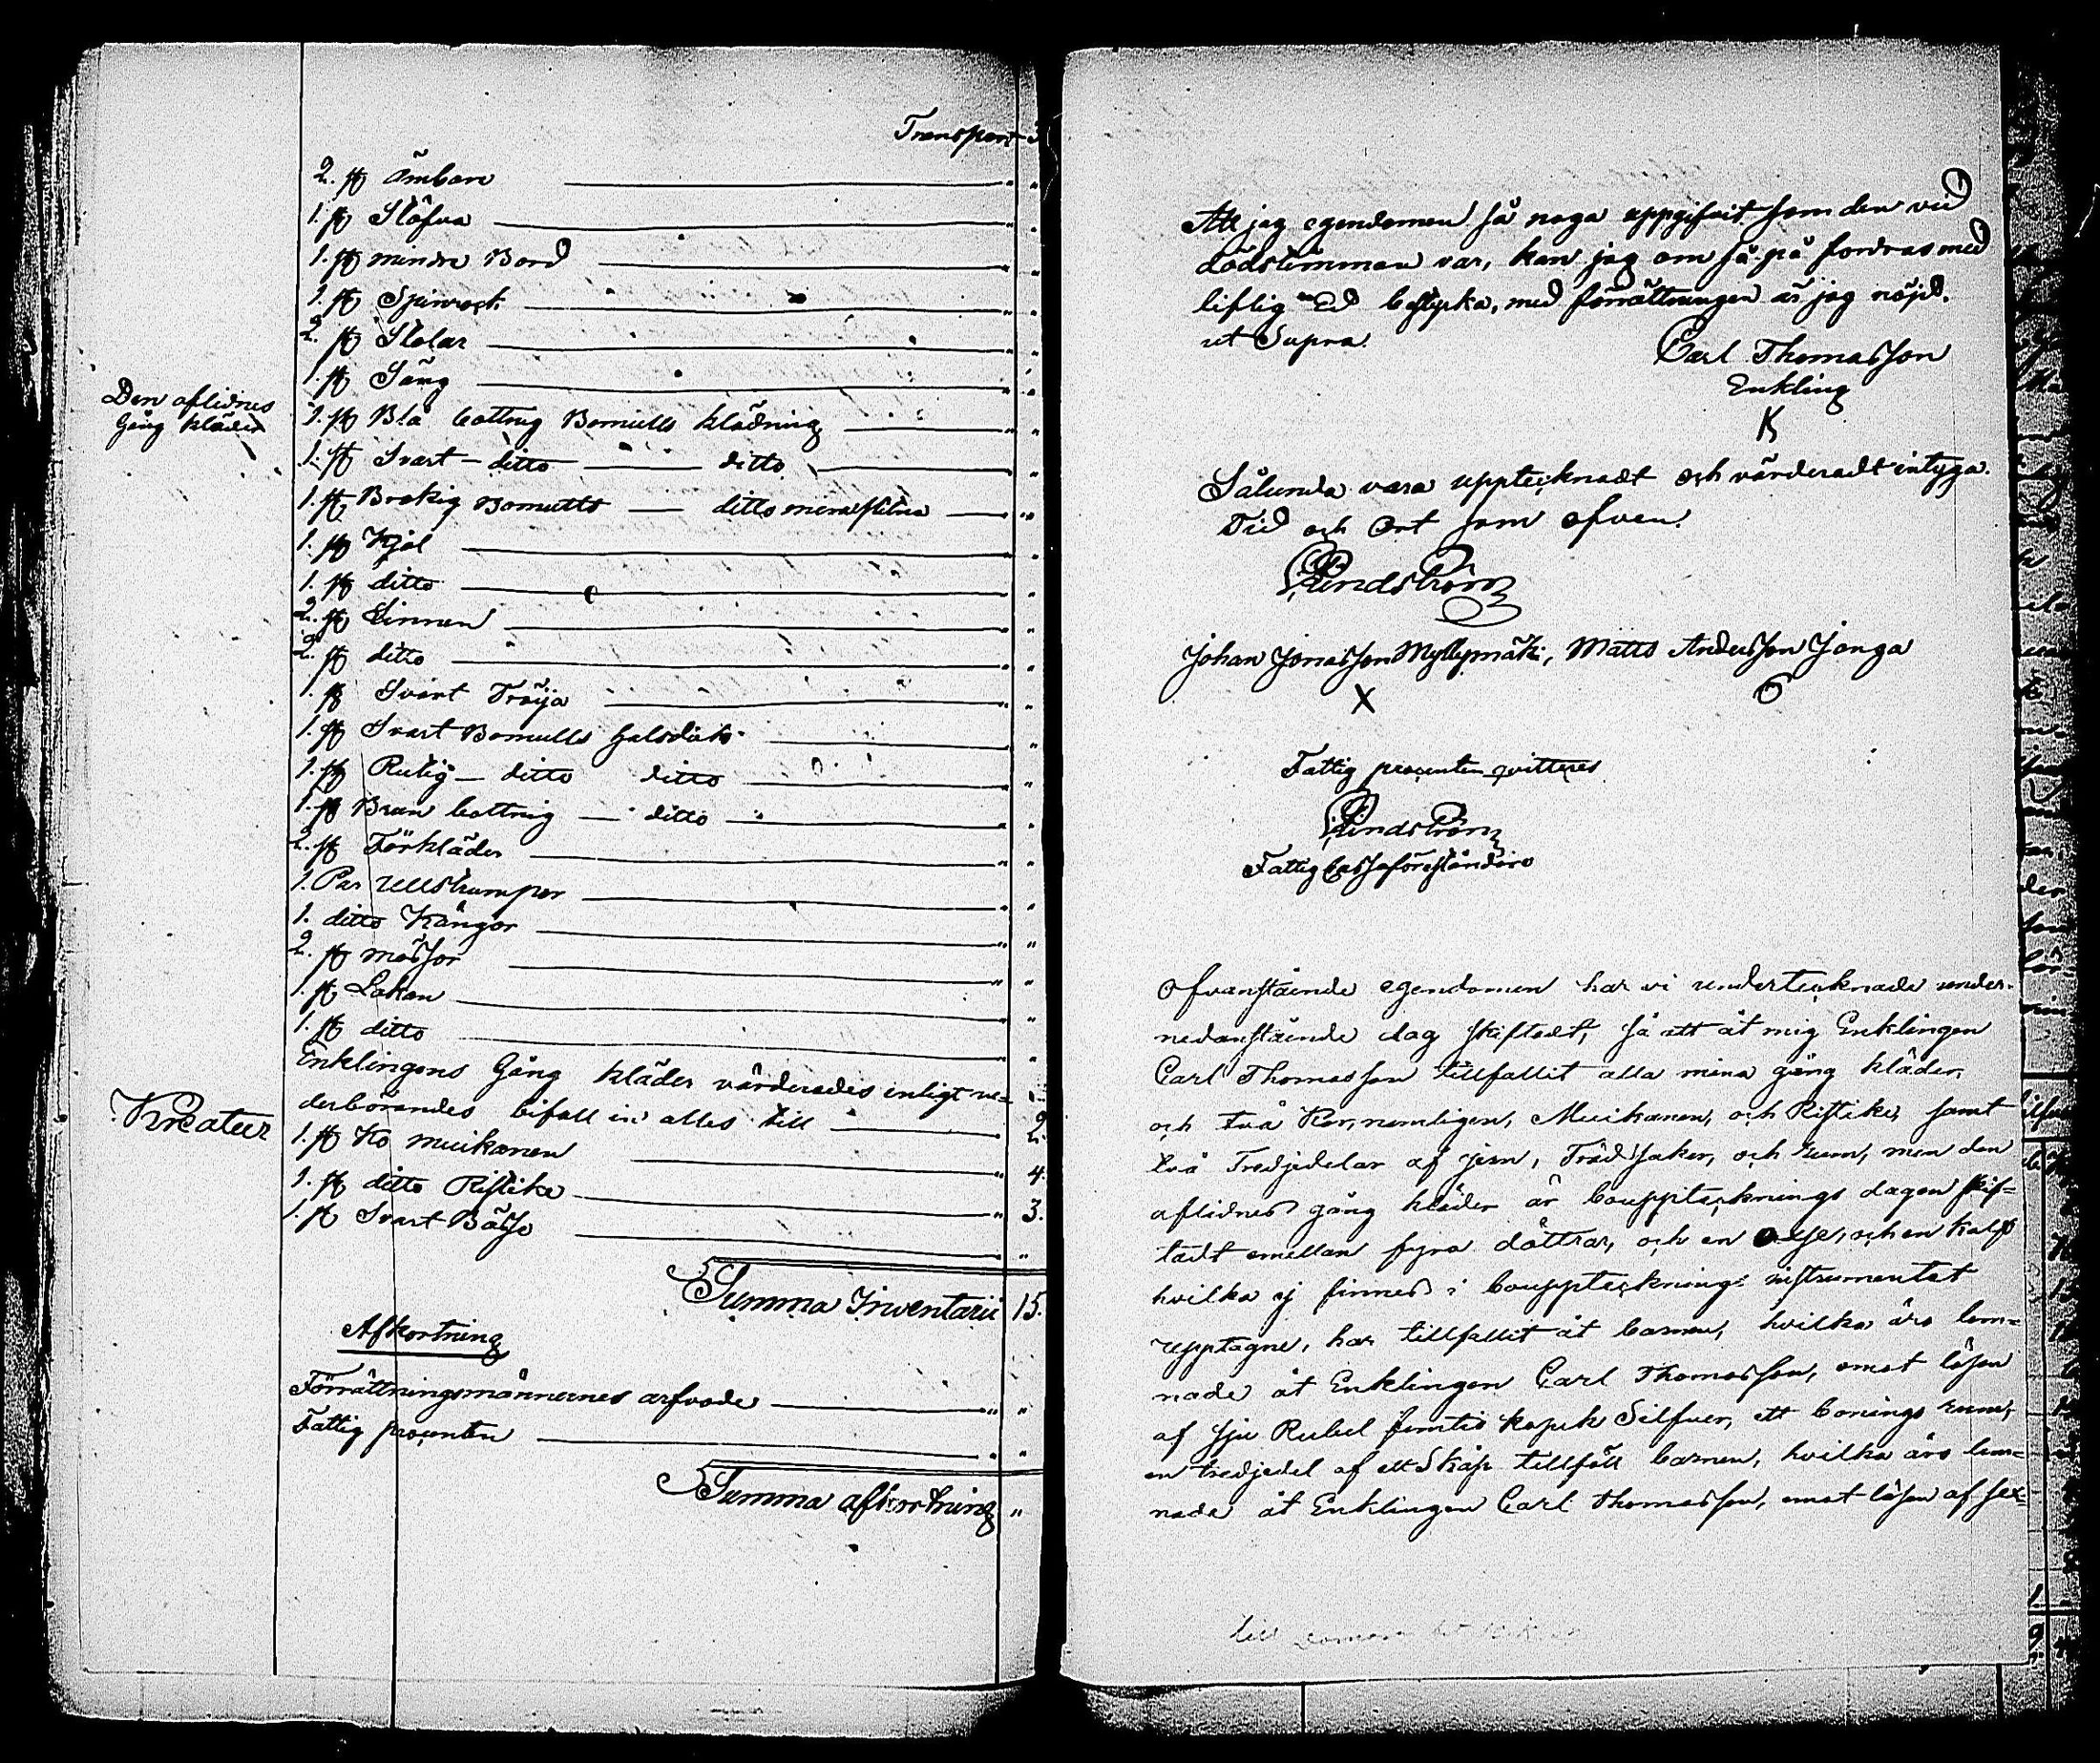 Transport 3
2. st Ämbare " "
1. st Slöfva " "
1. st mindre Bord " "
1. st Spinrock " "
2. st Stolar " "
1. st Säng " "
Den aflidnes
Gång kläder
1. st Blå Cattug Bomulls klädning " "
1. st Svart ditto ditto "
1. st Brokig Bomulls ditto mera slitna " "
1. st Kjol " "
1. st ditto "
2. st Linnen " "
2. st ditto "
1. st Svart Tröija " "
1. st Svart Bomulls halsduk "
1. st Rutig ditto ditto "
1. st Brun Cattug ditto "
2. st Förkläder " "
1. Par Ullstrumpor " "
1. ditto Kängor " "
2. st mössor " "
1. st Lakan " "
1. st ditto "
Enklingens Gång kläder värderades enligt ve-
derbörandes bifall in alles till 2.
Kreatur
1. st Ko Muikanen " 4.
1. st ditto Ristike " 3.
1. st Svart Bässe "
Summa Inventarii 15.
Afkortning
Förrättningsmännernes arfvode " "
Fattig procenten " "
Summa afkortning "
Att jag egendomen så noga uppgifvit som den vid
dödstimman var, kan jag om så på fordras med
liflig Ed bestyrka, med förrättningen är jag nöjd.
ut Supra
Carl Thomasson
Enkling
Sålunda vara upptecknadt och värderadt intyga.
Tid och Ort som ofvan.
Lindström
Johan Jonasson Myllymäki, Matts Andersson Jonga
X O
Fattig procenten qvitteras
Lindström
Fattig Cassaföreståndare
Ofvanstående egendomen har vi undertecknade under-
nedanstående dag skiftadt, så att åt mig Enklingen
Carl Thomasson tillfallit alla mina gång kläder,
och två Kor, nemligen, Muikanen, och Ristike, samt
två Tredjedelar af jern, Träd saker, och rum, men den
aflidnes gång kläder är bouppteckningsdagen skif-
tadt emellan fyra döttrar, och en och en Kalf
hvilka ej finnes i boupptecknings instrumentet
upptagne, har tillfallit åt barnen, hvilka äro lem-
nade åt Enklingen Carl Thomasson, emot lösen
af sju Rubel femtio kopek Silfver, ett bonings rum,
en tredjedel af ett Skåp tillföll barnen, hvilka äro lem-
nade åt Enklingen Carl Thomasson, emot lösen af sex-